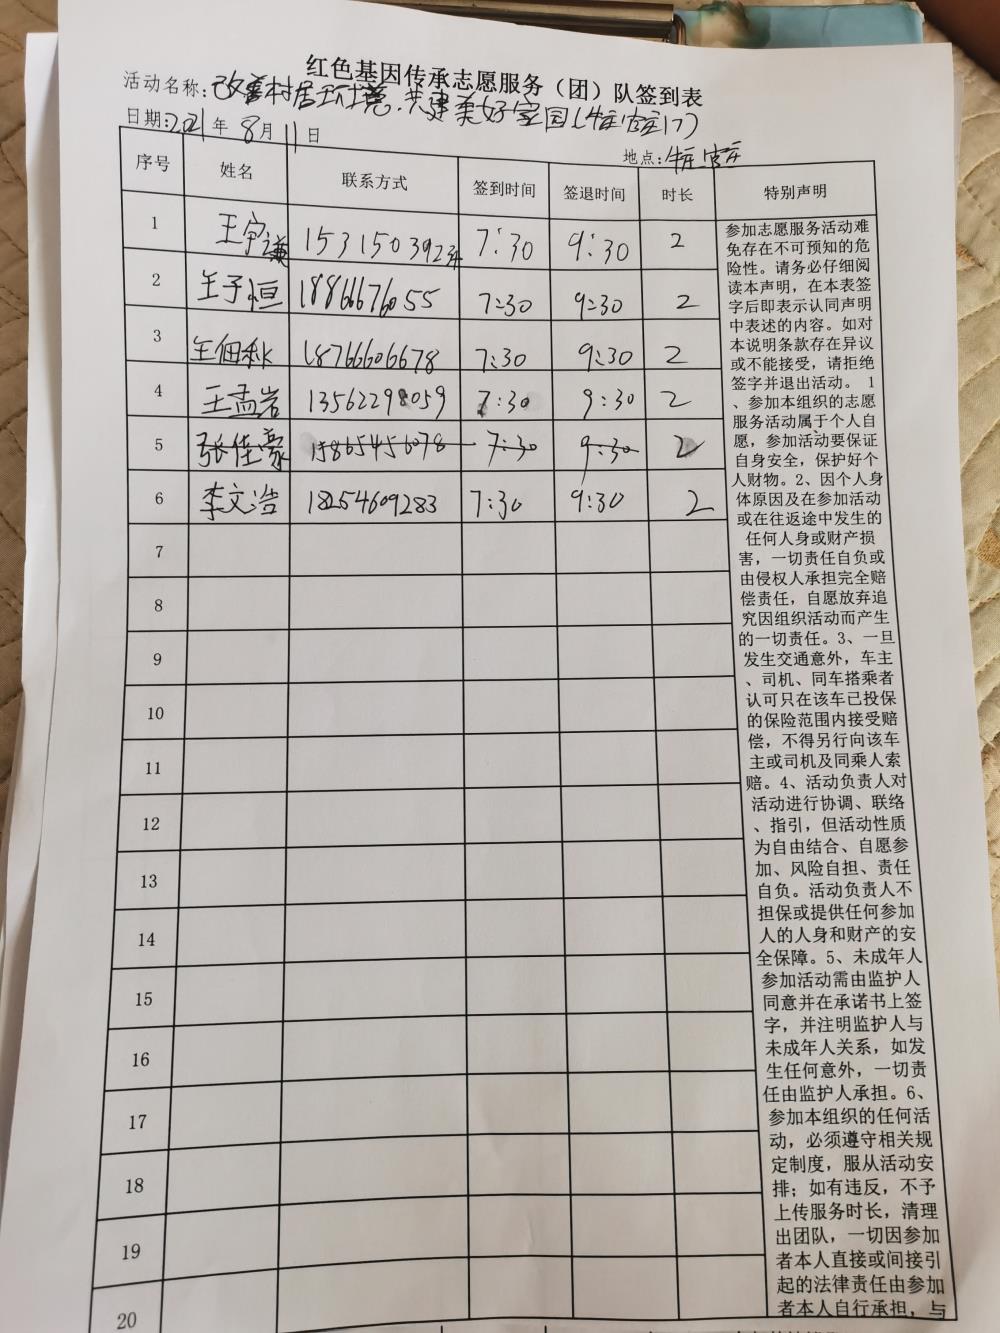 红色基因传承志愿服务（团）队签到表
活动名称：改善村居环境，共建美好家园（
日期：2021年8月11日
地点：
序号 姓名 联系方式 签到时间 签退时间 时长 特别声明
1 王宇谦 7:30 9:30 2
2 王子恒 18866676055 7:30 9:30 2
3 18766606678 7:30 9:30 2
4 王孟岩 7:30 9:30 2
5 张佳豪 15865456078 7:30 9:30 2
6 李文浩 18254609283 7:30 9:30 2
7
8
9
10
11
12
13
14
15
16
17
18
19
20
参加志愿服务活动难
免存在不可预知的危
险性。请务必仔细阅
读本声明，在本表签
字后即表示认同声明
中表述的内容。如对
本说明条款存在异议
或不能接受，请拒绝
签字并退出活动。1
、参加本组织的志愿
服务活动属于个人自
愿，参加活动要保证
自身安全，保护好个
人财物。2、因个人身
体原因及在参加活动
或在往返途中发生的
任何人身或财产损
害，一切责任自负或
由侵权人承担完全赔
偿责任，自愿放弃追
究因组织活动而产生
的一切责任。3、一旦
发生交通意外，车主
、司机、同车搭乘者
认可只在该车已投保
的保险范围内接受赔
偿，不得另行向该车
主或司机及同乘人索
赔。4、活动负责人对
活动进行协调、联络
、指引，但活动性质
为自由结合、自愿参
加、风险自担、责任
自负。活动负责人不
担保或提供任何参加
人的人身和财产的安
全保障。5、未成年人
参加活动需由监护人
同意并在承诺书上签
字，并注明监护人与
未成年人关系，如发
生任何意外，一切责
任由监护人承担。6、
参加本组织的任何活
动，必须遵守相关规
定制度，服从活动安
排；如有违反，不予
上传服务时长，清理
出团队，一切因参加
者本人直接或间接引
起的法律责任由参加
者本人自行承担，与